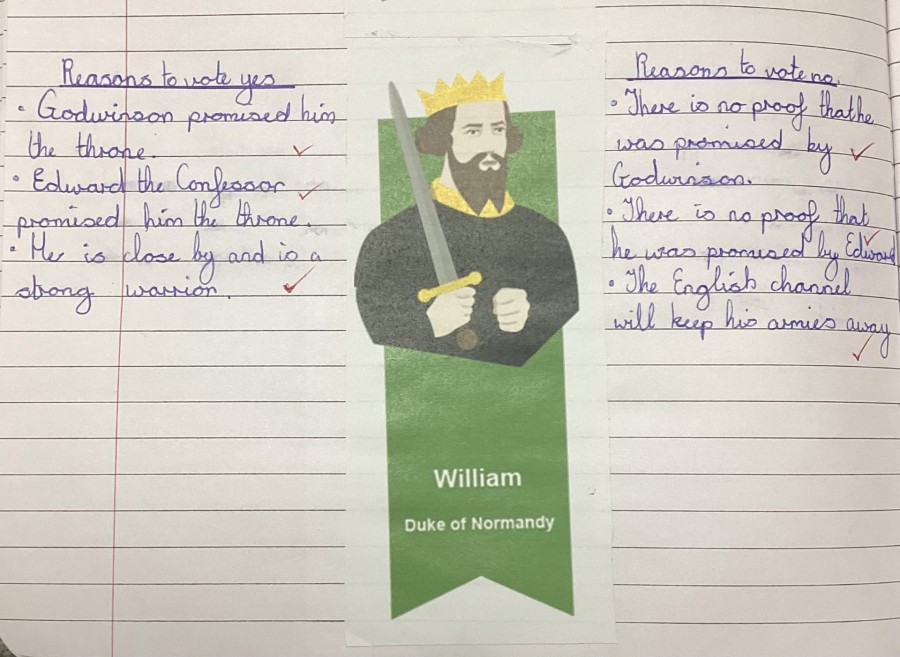 Reasons to vote yes
• Godwinson promised him
the throne.
• Edward the Confessor
promised him the throne.
• He is close by and is a
strong warrior.
William
Duke of Normandy
Reasons to vote no.
• There is no proof that he
was promised by
Godwinson.
• There is no proof that
he was promised by Edward
• The English channel
will keep his armies away